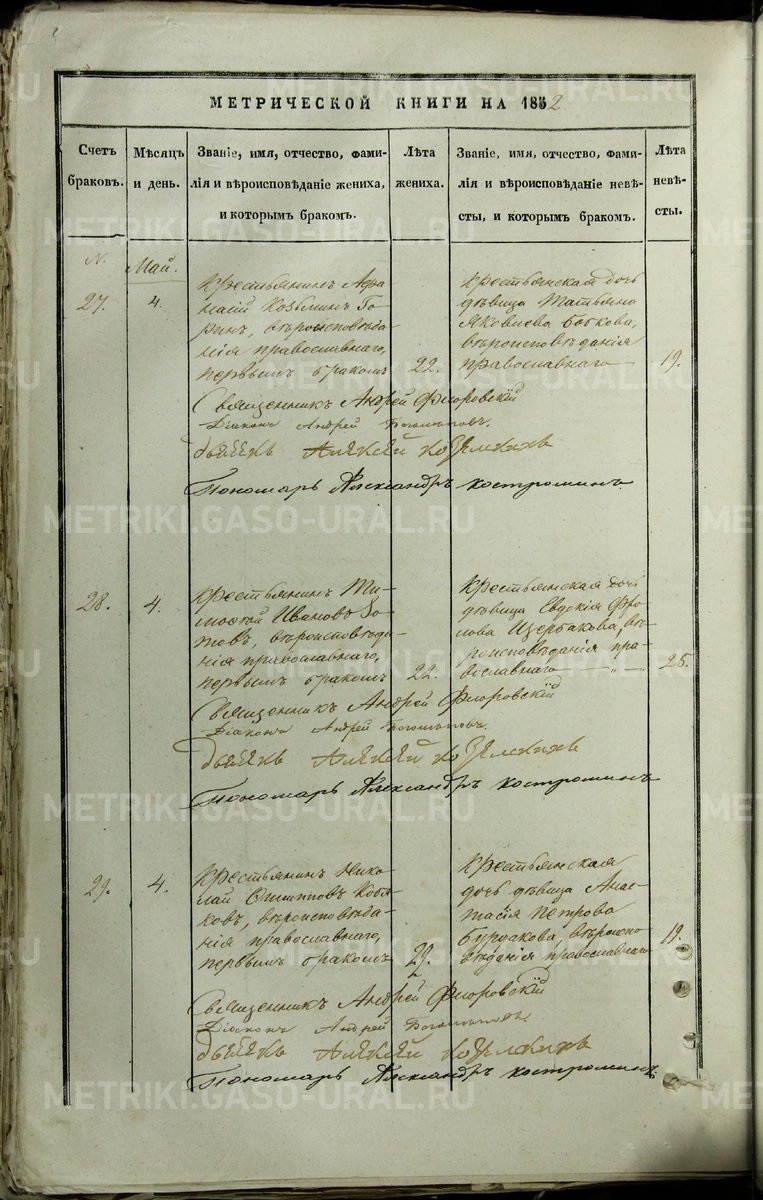 МЕТРИЧЕСКОЙ КНИГИ НА 1852
Счетъ браковъ.
Мѣсяцъ и день.
Званіе, имя, отчество, фами-
лія и вѣроисповѣданіе жениха,
и которымъ бракомъ.
Лѣта жениха.
Званіе, имя, отчество, фами-
лія и вѣроисповѣданіе невѣ-
сты, и которымъ бракомъ.
Лѣта невѣ-
сты.
N.
Май.
27.
4.
Крестьянинъ Афа
насій Козьминъ Го-
ринъ, вѣроисповѣда-
нія православнаго,
первымъ бракомъ
22.
Крестьянская дочь
дѣвица Татьяна
Яковлева Бобкова,
вѣроисповѣданія
православнаго
19.
Священникъ Андрей Флоровскій
Діаконъ Андрей
Дьячекъ Алексѣй
Пономарь Александръ Костроминъ
28.
4.
Крестьянинъ Ти-
мофей Ивановъ Зо-
товъ, вѣроисповѣда-
нія православнаго,
первымъ бракомъ
22.
Крестьянская дочь
дѣвица Евдокія Фро
лова Щербакова, вѣ-
роисповѣданія пра-
вославнаго
25.
Священникъ Андрей Флоровскій
Діаконъ Андрей
Дьячекъ Алексѣй
Пономарь Александръ Костроминъ
29.
4.
Крестьянинъ Нико
лай Филипповъ
вѣроисповѣда-
нія православнаго,
первымъ бракомъ
22.
Крестьянская
дочь дѣвица Анас-
тасія Петрова
Бурдакова, вѣроиспо
вѣданія православнаго
19.
Священникъ Андрей Флоровскій
Діаконъ Андрей
Дьячекъ Алексѣй
Пономарь Александръ Костроминъ
METRIKI.GASO-URAL.RU